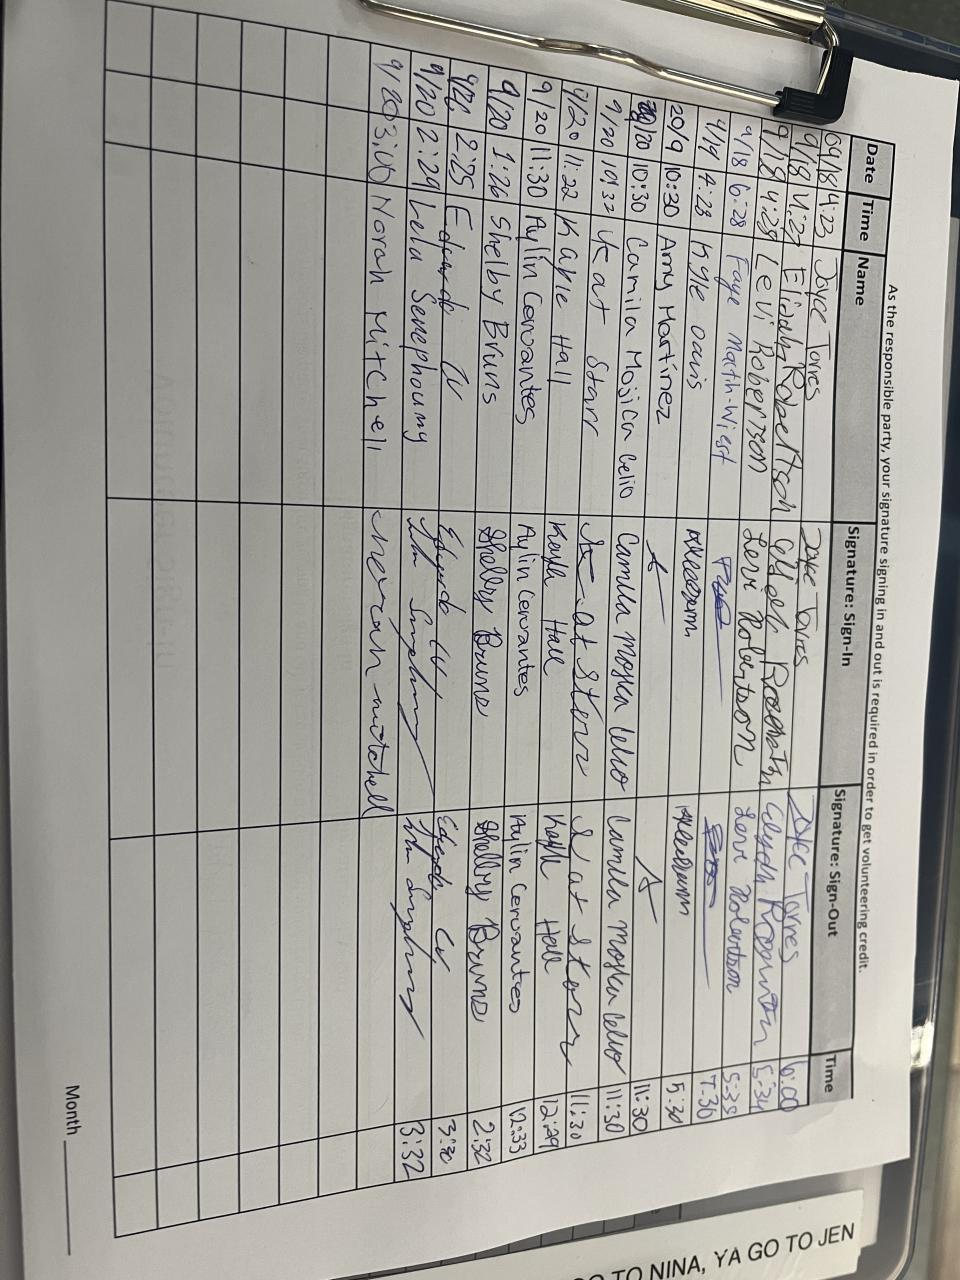 As the responsible party, your signature signing in and out is required in order to get volunteering credit.
Date Time Name Signature: Sign-In Signature: Sign-Out Time
09/18 4:23 Joyce Torres Joyce Torres Joyce Torres 6:00
9/18 4:27 Elijah Robertson 5:34
9/18 4:29 Levi Robertson Levi Robertson Levi Robertson 5:35
9/18 6:28 Faye Martin-Wiest 7:30
4:28 Kyle 5:30
20/9 10:30 Amy Martinez 11:30
9/20 10:30 Camila Mojica Celio Camila Mojica Celio Camila Mojica Celio 11:30
9/20 10:32 Kat Starr Kat Starr Kat Starr 11:30
9/20 11:22 Kayle Hall Kayle Hall Kayle Hall 12:29
9/20 11:30 Aylin Cervantes Aylin Cervantes Aylin Cervantes 12:33
9/20 1:26 Shelby Bruns Shelby Bruns Shelby Bruns 2:32
2:25 Eduardo W 3:30
9/20 2:29 Lela Senephoumy 3:32
9/20 3:00 Norah Mitchell Norah Mitchell
Month
TO NINA, YA GO TO JEN